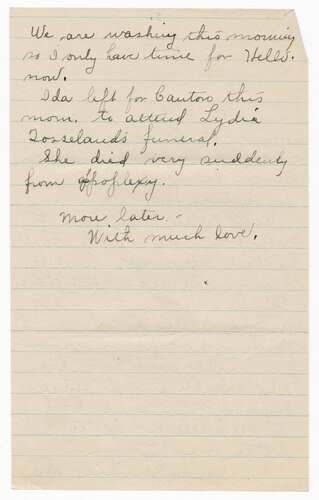 We are washing this morning
so I only have time for "Hello"
now.
Ida left for Canton this
morn. to attend Lydia
Tosseland's funeral.
She died very suddenly
from apoplexy.
More later -
With much love.